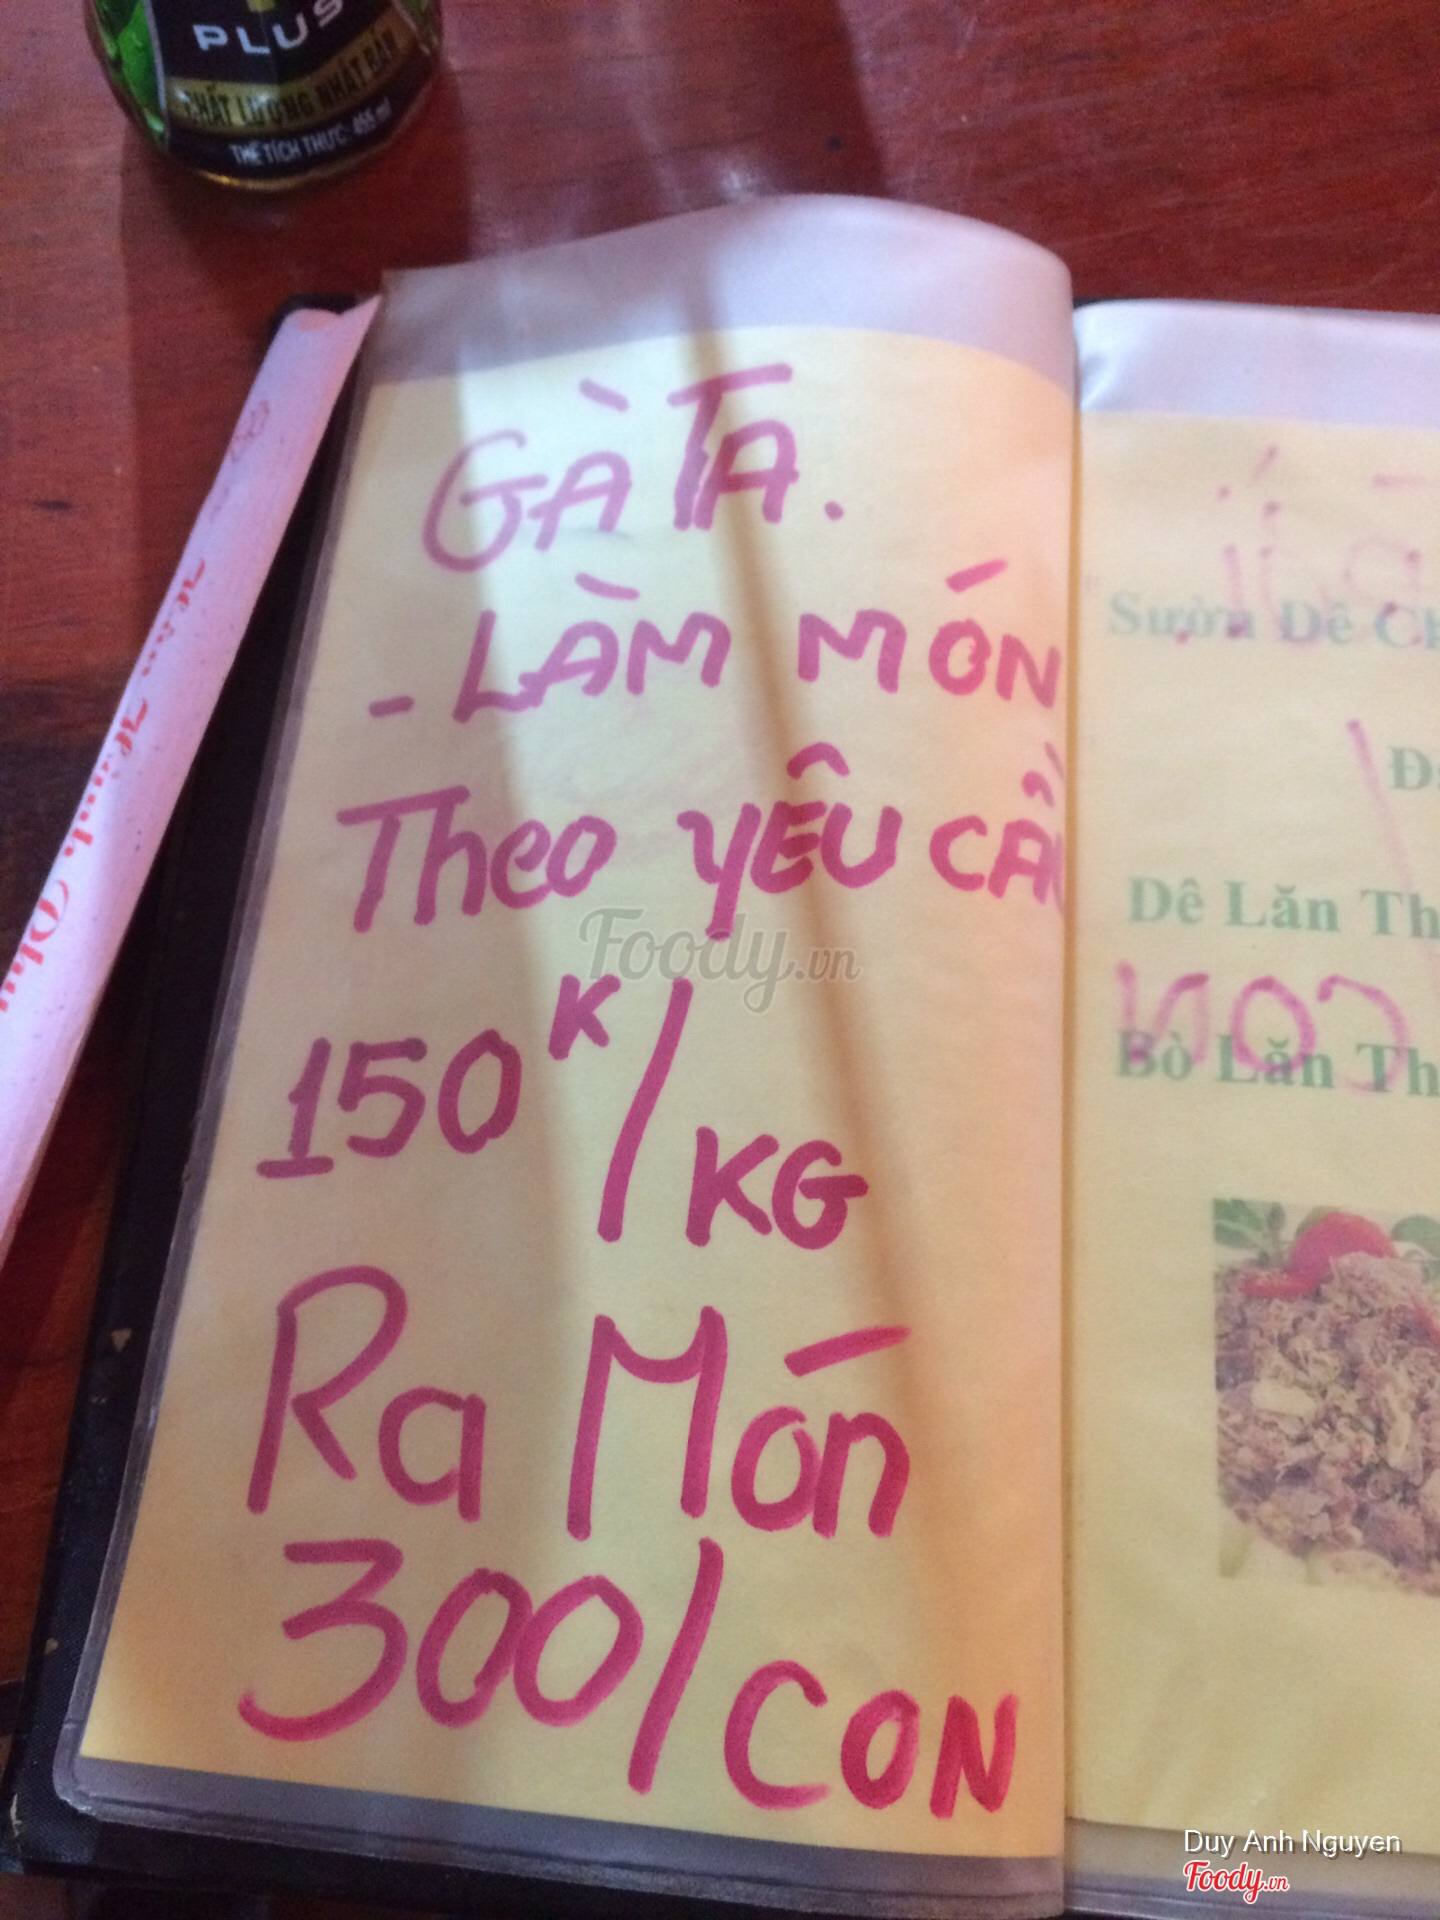 PLUS
CHẤT LƯỢNG NHẬT BẢN
THỂ TÍCH THỰC: 455 ml
GÀ TA.
- LÀM MÓN
Theo YÊU CẦU
150K/KG
Ra Món
300/CON
Sườn Dê
Dê Lăn Th
CON
Bò Lăn Th
Foody.vn
Duy Anh Nguyen
Foody.vn